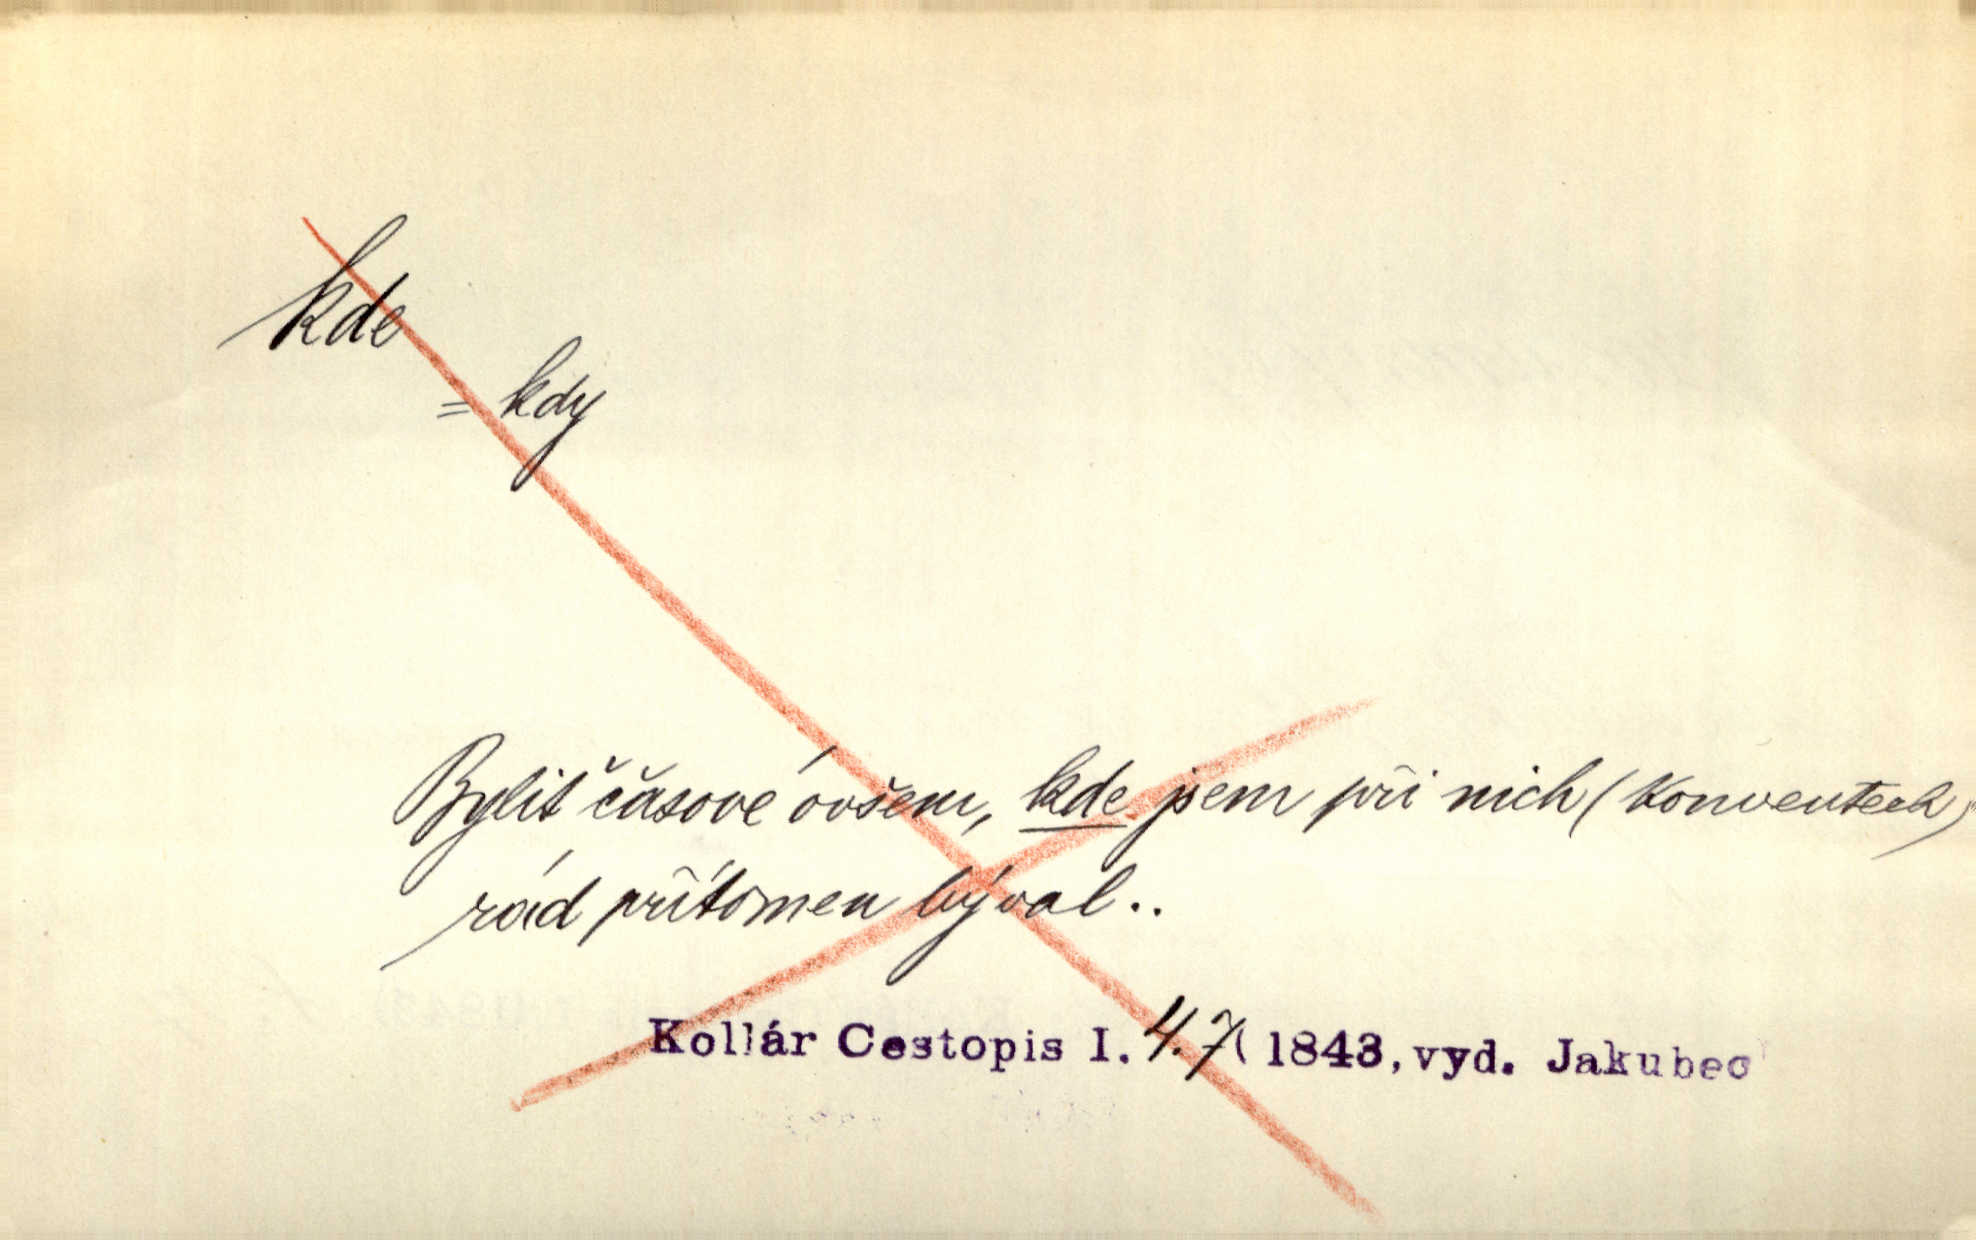 kde
= kdy
Bylit' časové ovšem, kde jsem při nich (konventech)
rád přítomen býval..
Kollár Cestopis I. 4.7 (1843, vyd. Jakubec